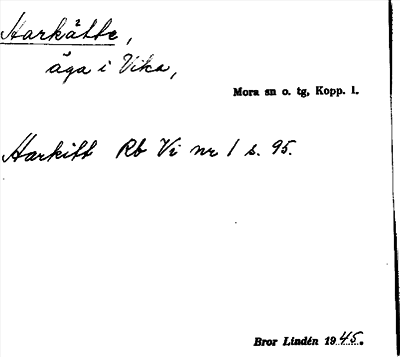 Harkätte,
äga i Vika,
Mora sn o. tg, Kopp. l.
Harkitt Rb Vi nr 1 s. 95.
Bror Lindén 1945.